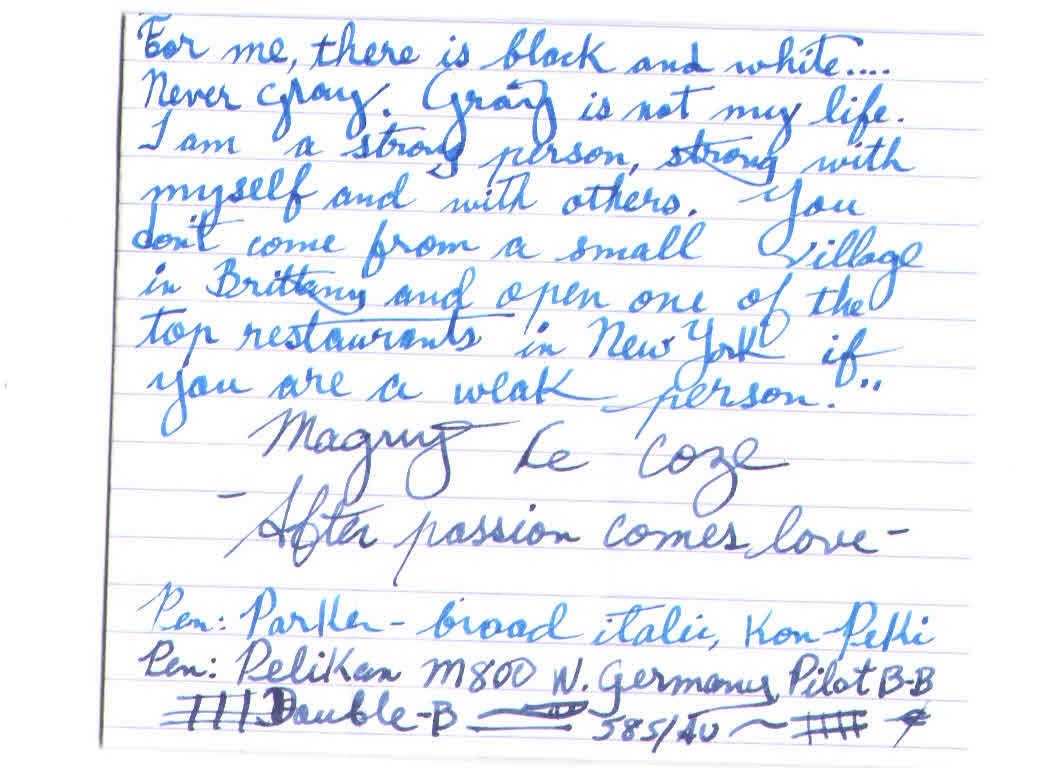 For me, there is black and white....
Never gray. Gray is not my life.
I am a strong person, strong with
myself and with others. You
don't come from a small village
in Brittany and open one of the
top restaurants in New York if
you are a weak person."
Maguy Le Coze
- After passion comes love -
Pen: Parker - broad italic, Kon-Peki
Pen: Pelikan M800 W. Germany Pilot B-B
Double-B 585/Au